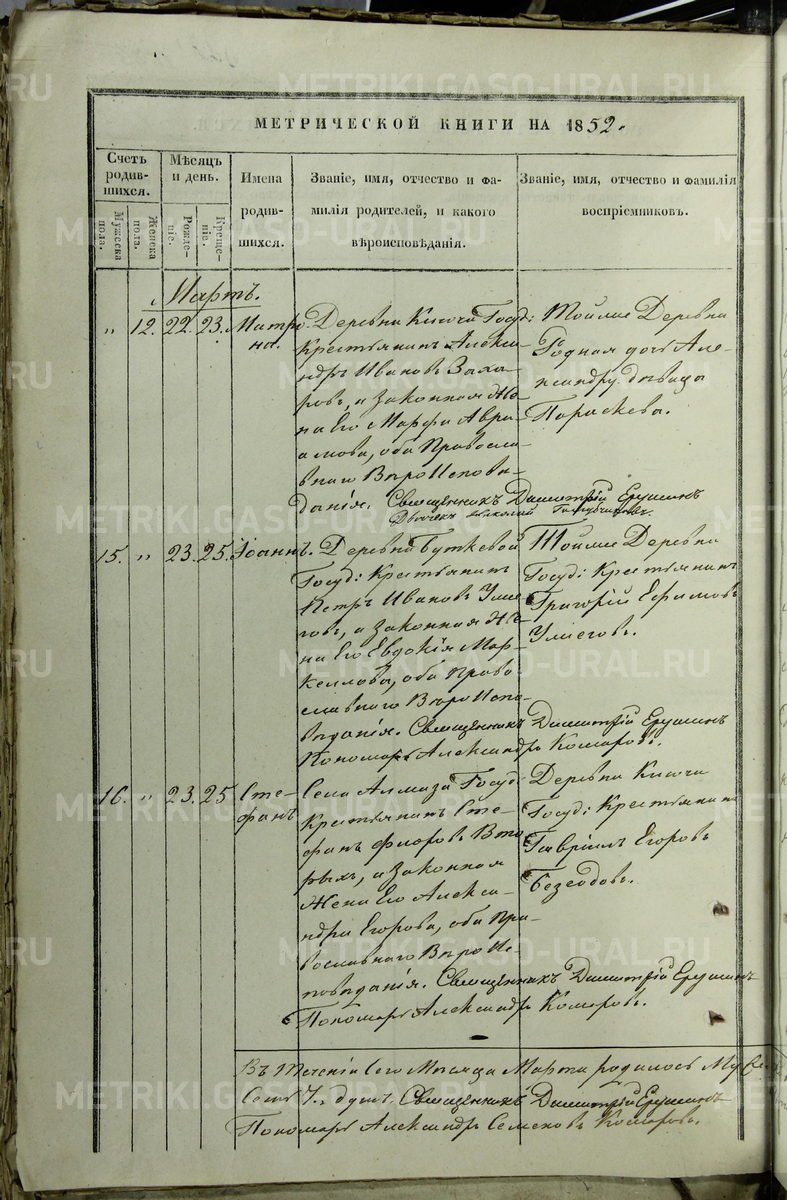 METRIKI.GASO-URAL.RU
МЕТРИЧЕСКОЙ КНИГИ НА 1852.
Счетъ родив-шихся.
Мужеска пола.
Женска пола.
Мѣсяцъ и день.
Рожде-ніе.
Креще-ніе.
Имена родив-шихся.
Званіе, имя, отчество и фа-
милія родителей, и какого
вѣроисповѣданія.
Званіе, имя, отчество и фамилія
воспріемниковъ.
Мартъ.
" 12. 22. 23. Матро-
на.
Деревни Ключа Госуд:
Крестьянинъ Алекса-
ндръ Ивановъ Заха-
ровъ, и Законная Же-
на Его Марфа Авра-
амова, оба Правосла-
внаго Вѣро Исповѣ-
данія. Священникъ Димитрій
Дьячекъ Николай
Тойже Деревни
Родная дочь Але-
ксандру дѣвица
Параскева.
15. " 23. 25. Іоаннъ.
Деревни Бутковой
Госуд: Крестьянинъ
Петръ Ивановъ
и Законная Же-
на Его Евдокія Мар-
келлова, оба Право-
славнаго Вѣро Испо-
вѣданія. Священникъ Димитрій
Пономарь Александръ Комаровъ.
Тойже Деревни
Госуд: Крестьянинъ
Григорій Ефимовъ
16. " 23. 25. Сте-
фанъ
Села Алмаза Госуд:
Крестьянинъ Сте-
фанъ Флоровъ Вто-
рыхъ, и Законная
Жена Его Алекса-
ндра Егорова, оба Пра-
вославнаго Вѣро Ис-
повѣданія. Священникъ Димитрій
Пономарь Александръ Комаровъ.
Деревни Ключа
Госуд: Крестьянинъ
Гавріилъ Егоровъ
Въ теченіи Сего Мѣсяца Марта родилось
Семь 7. душъ. Священникъ Димитрій
Пономарь Александръ Семеновъ Комаровъ.